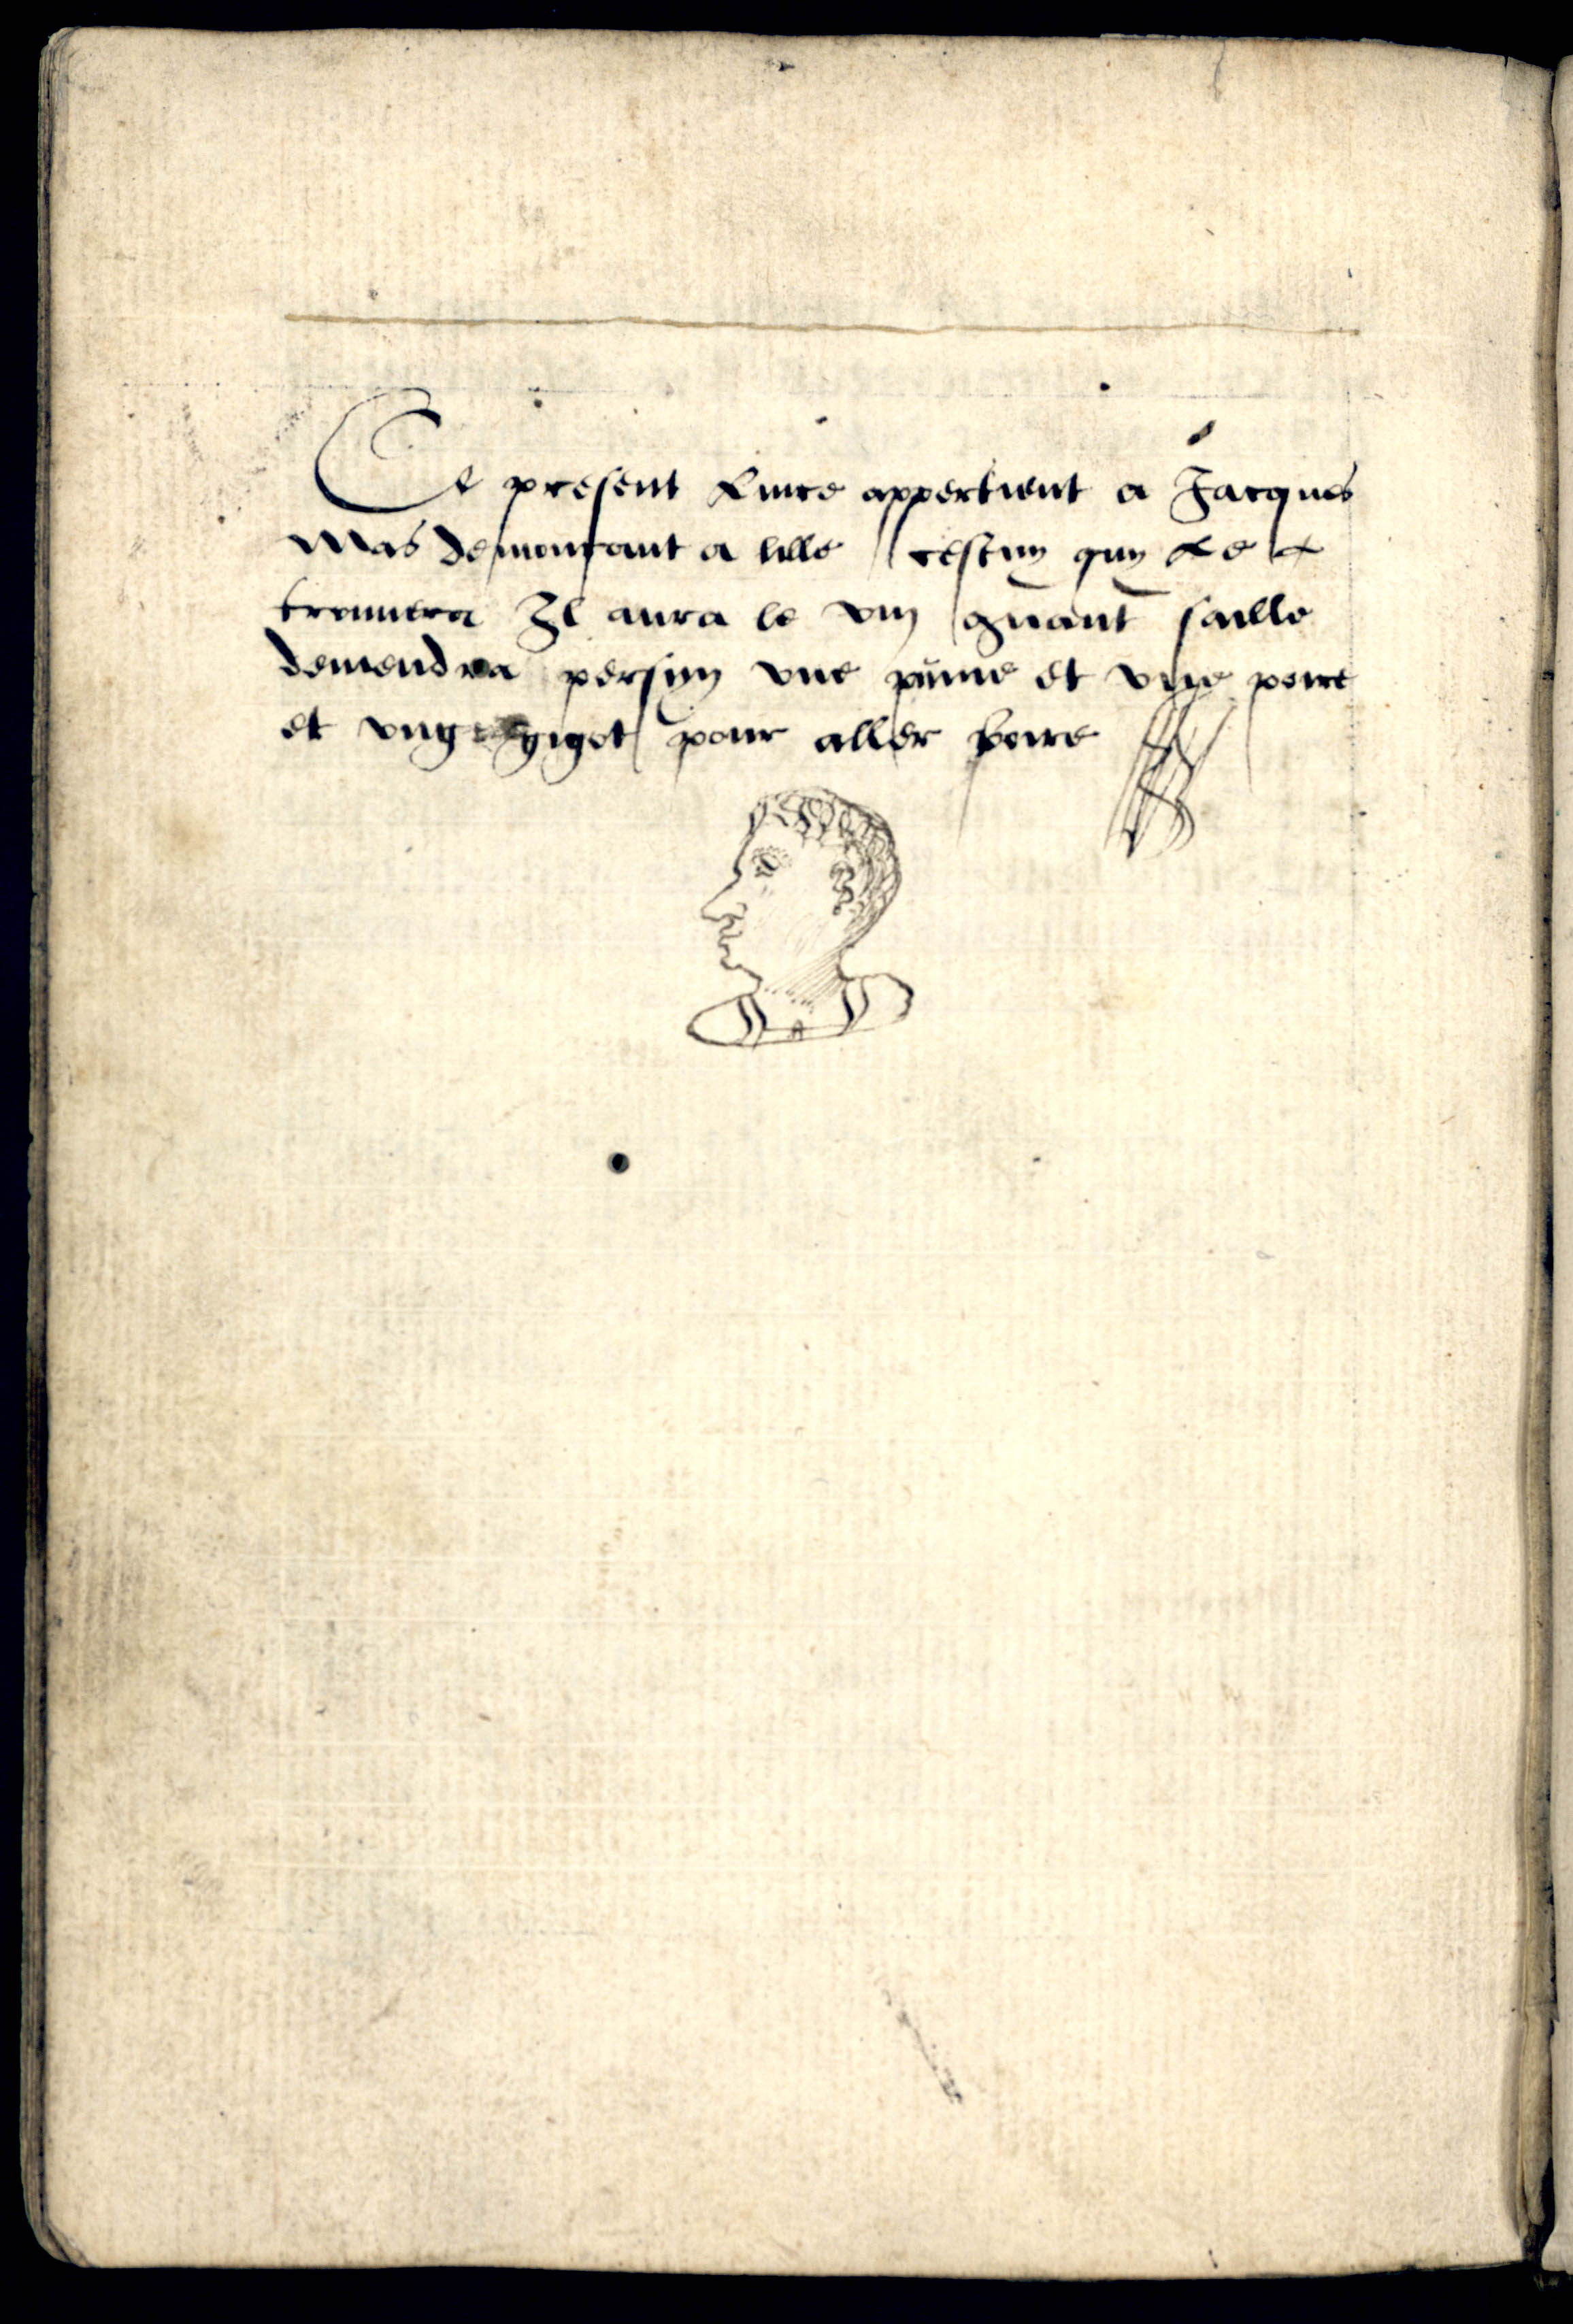 Ce present Liure appertient a Jacques
Mas demourant a lille cestuy quy Le
trouuera Il aura le vin quant saille
demendra persyn vne pume et vne poire
et vng gigot pour aller boire